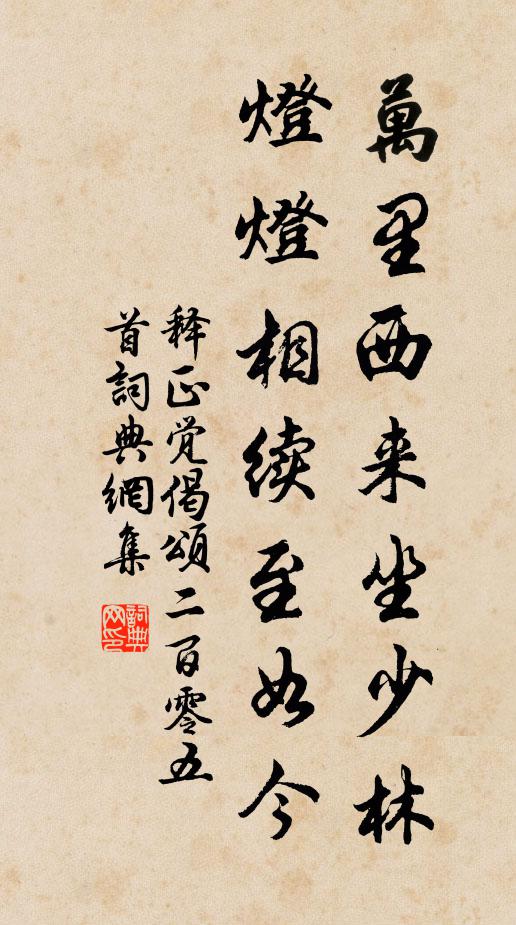 萬里西来坐少林
燈燈相續至如今
释正觉偈頌二百零五
首詞典網集
詞典
网印